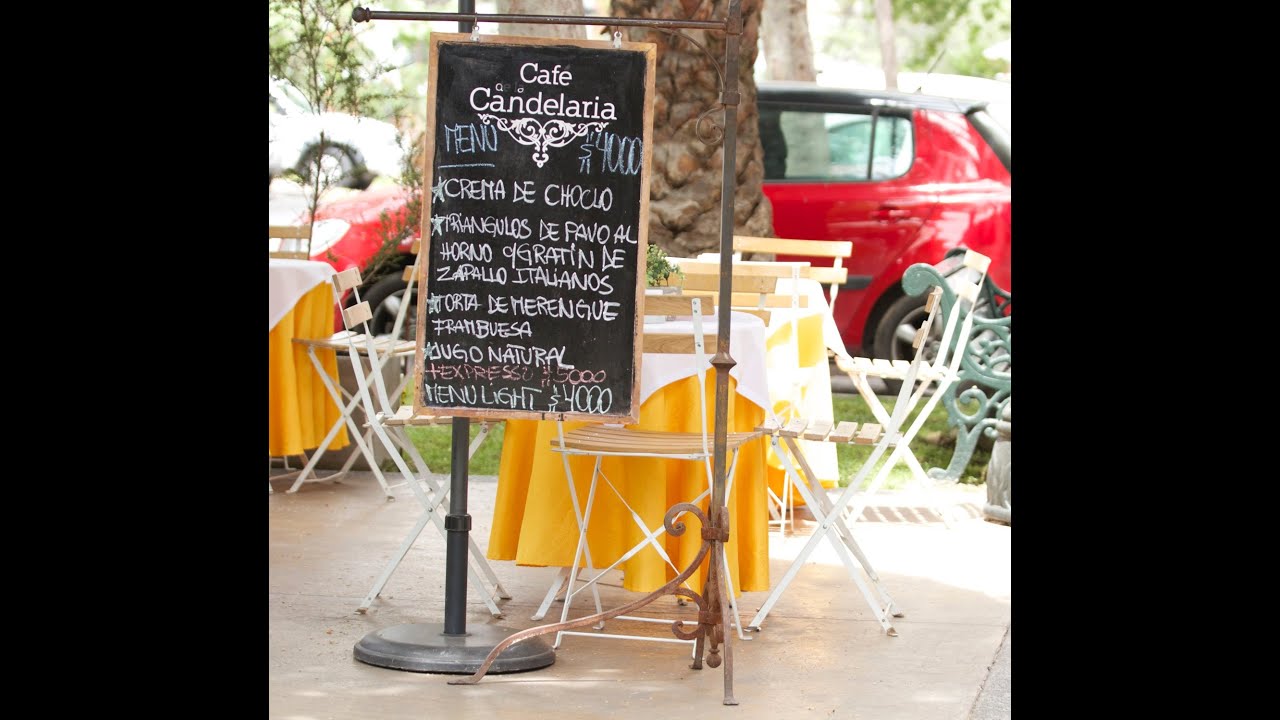 Cafe
de la
Candelaria
MENÚ $4000
*CREMA DE CHOCLO
*TRIANGULOS DE PAVO AL
HORNO C/GRATÍN DE
ZAPALLO ITALIANOS
*TORTA DE MERENGUE
FRAMBUESA
*JUGO NATURAL
+EXPRESSO $5000
MENÚ LIGHT $4000